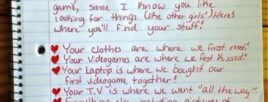 game, since I know you like
looking for things (like other girls!) Here's
where you'll find your stuff:
Your clothes are where we first met!
Your Videogames are where we first kissed!
Your Laptop is where we bought our
first videogame together!
Your T.V is where we went "all the way"